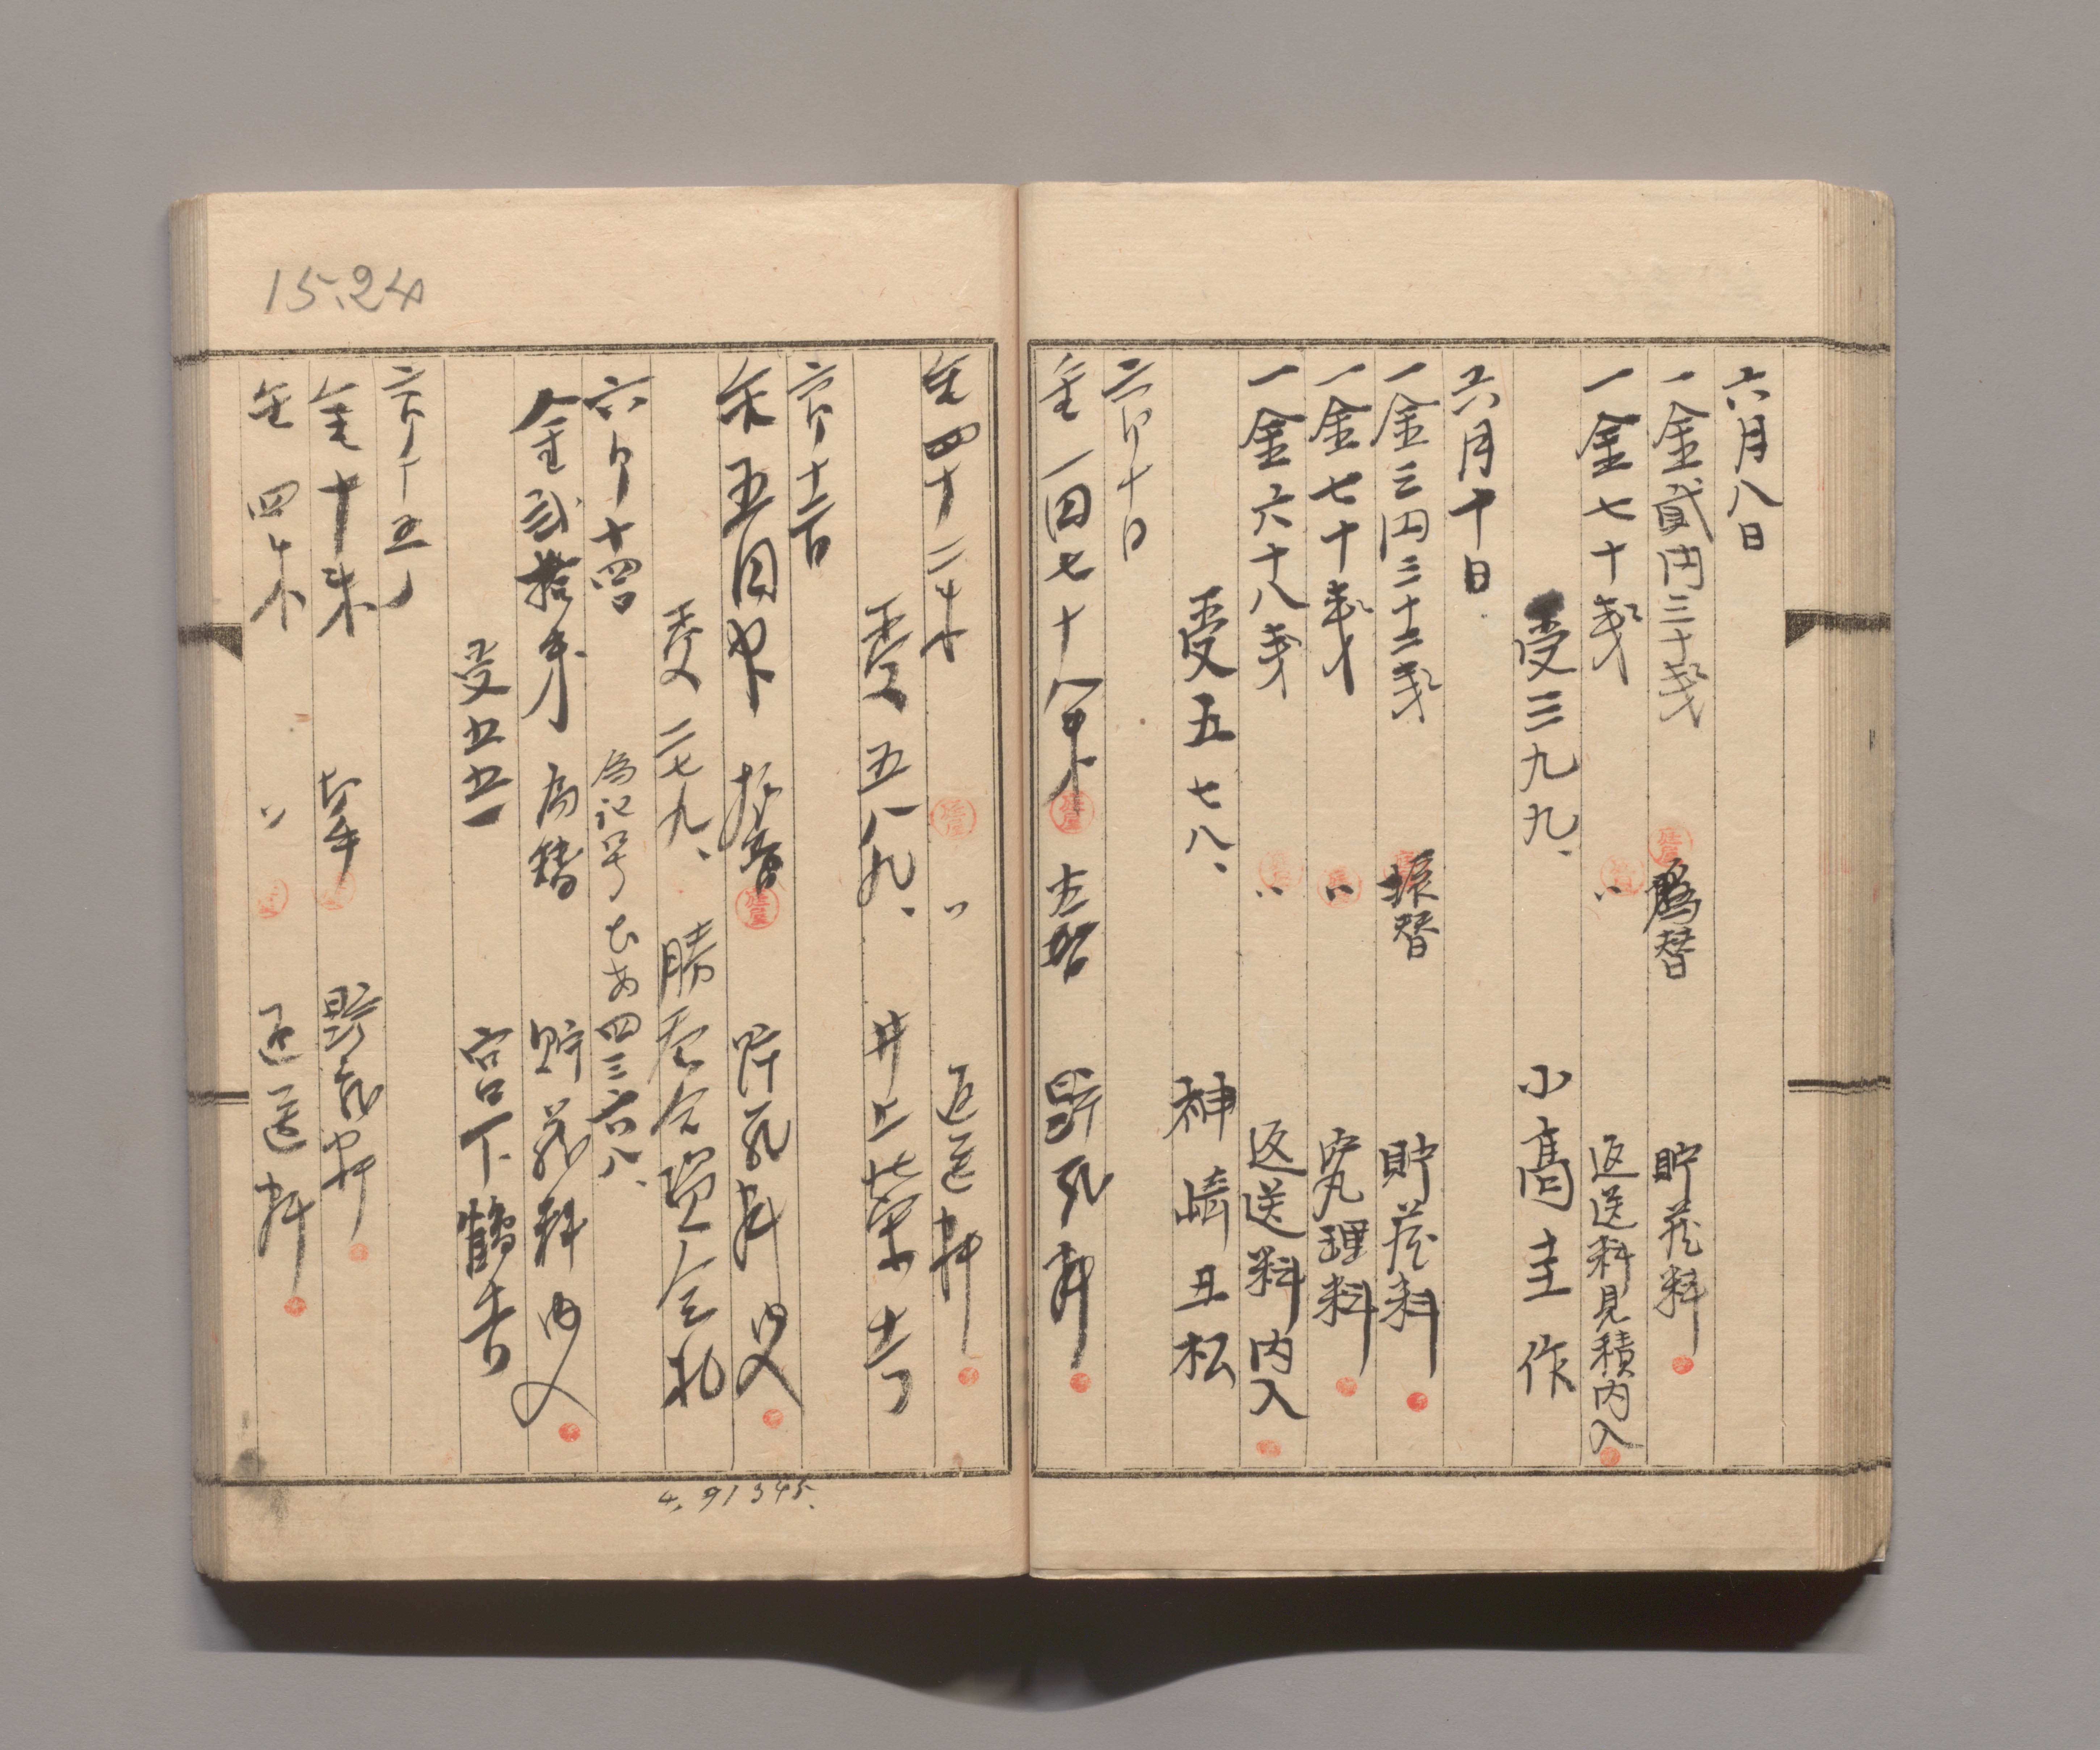 六月八日
一金貮円三十銭 為替 貯蔵料
一金七十銭 〃 返送料見積内入
受三九九、 小髙圭作
六月十日
一金三円三十二銭 振替 貯蔵料
一金七十銭 〃 究理料
一金六十八銭 〃 返送料内入
受五七八、 神崎丑松
六月十日
金一円七十八銭 貯蔵料
金四十二銭 〃 返送料
受五八九、 井上栄吉
金五円也 振替 貯蔵料内入
受二七九、
六月十四日 為記号 四三六八、
金貮拾銭 為替 貯蔵料内入
受五五一 宮下鶴吉
六月十五日
金十銭 貯蔵料
金四十銭 〃 返送料
15.24
4.91345.